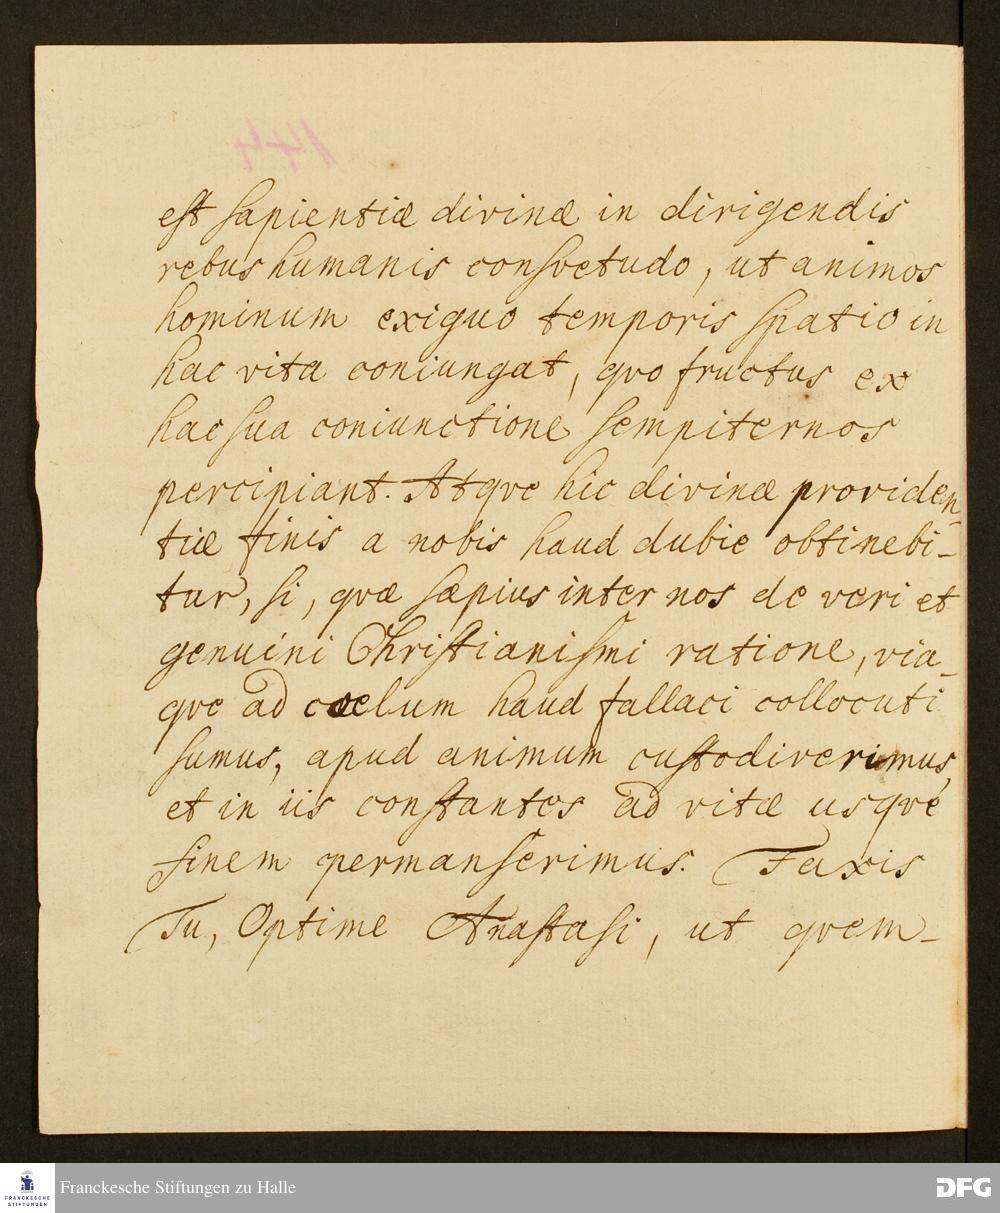 est sapientiæ divinæ in dirigendis
rebus humanis consvetudo, ut animos
hominum exiguo temporis spatio in
hac vita coniungat, qvo fructus ex
hac sua coniunctione sempiternos
percipiant. Atqve hic divinæ providen-
tiæ finis a nobis haud dubie obtinebi-
tur, si, qvæ sæpius inter nos de veri et
genuini Christianismi ratione, via-
qve ad coelum haud fallaci collocuti
sumus, apud animum custodiverimus,
et in iis constantes ad vitæ usqve
finem permanserimus. Faxis
Tu, Optime Anastasi, ut qvem-
FRANCKESCHE
STIFTUNGEN
Franckesche Stiftungen zu Halle
DFG